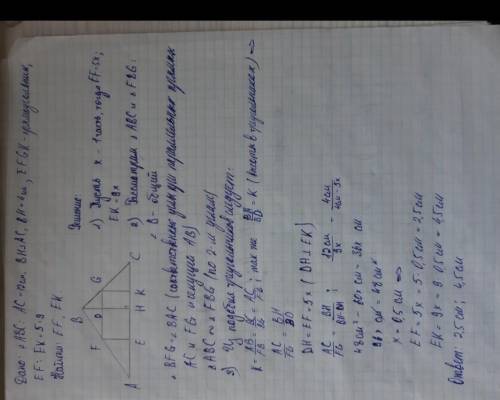 Дано: △ABC AC=12см, BH⊥AC, BH=4см, EFGK-прямоугольник,
EF:EK=5:9
Найти: EF; EK
Решение:
B
F D G
A E H K C
1) Пусть x - 1 часть, тогда EF=5x;
EK=9x
2) Рассмотрим △ABC и △FBG:
∠B - общий
∠BFG=∠BAC (соответственные углы при параллельных прямых
AC и FG и секущей AB)
△ABC ~ △FBG (по 2-м углам)
3) Из подобия треугольников следует:
k = AB/FB = BC/BG = AC/FG; так же BH/BD = k (высоты в треугольниках) ⇒
AC/FG = BH/BD
DH=EF=5x (DH⊥EK)
AC/FG = BH/BH-DH; 12см/9x = 4см/4см-5x
48см - 60x см = 36x см
96x см = 48 см
x = 0,5см ⇒
EF=5x=5·0,5см=2,5см
EK=9x=9·0,5см=4,5см
Ответ: 2,5см; 4,5см